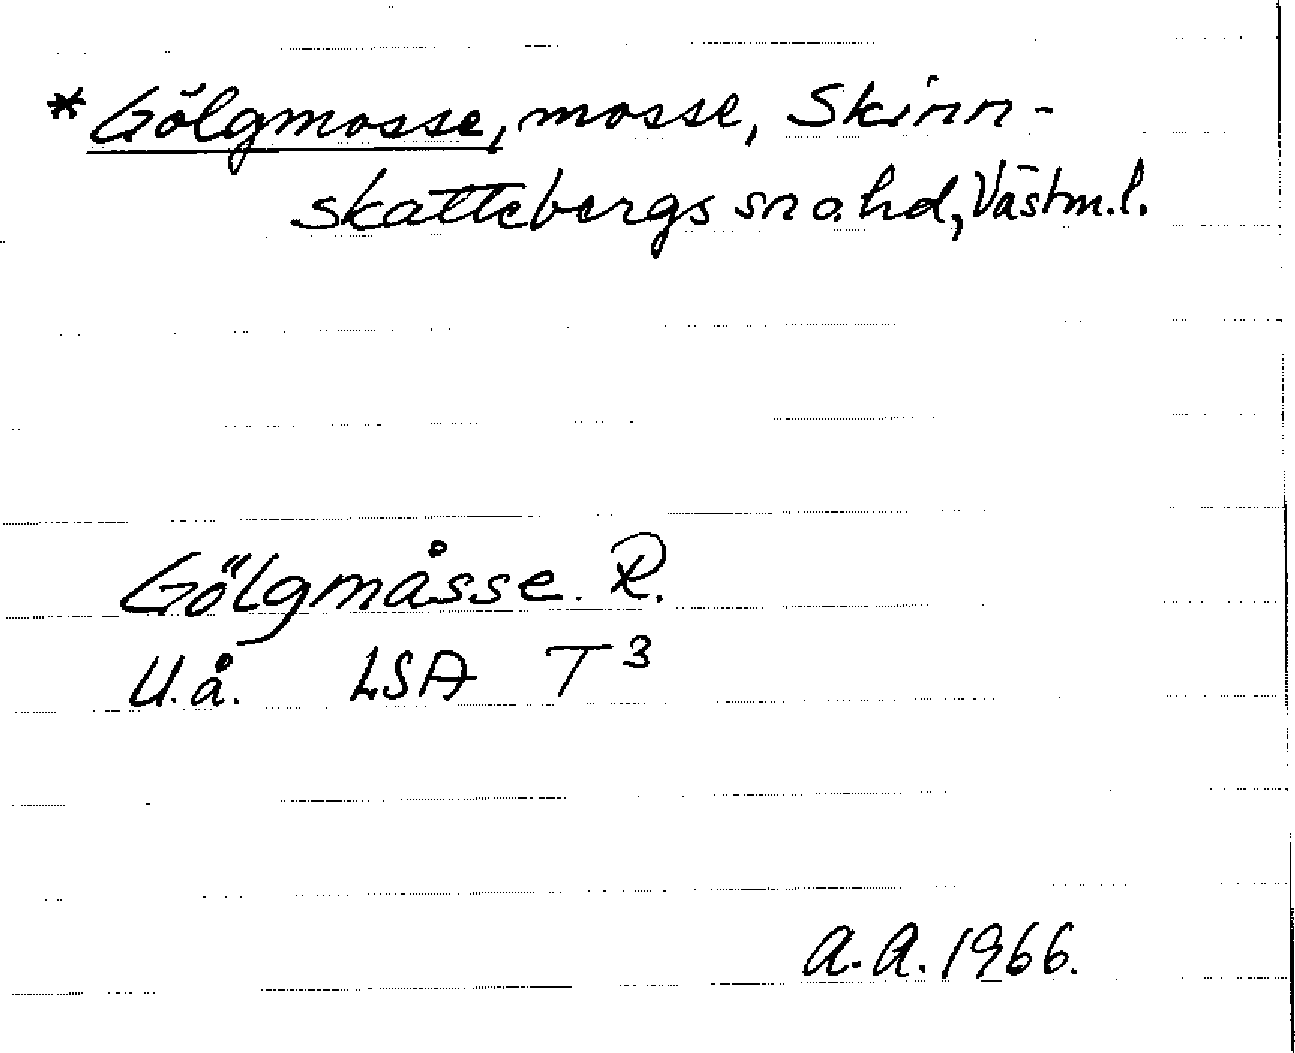 *Gölgmosse, mosse, Skinn-
skattebergs sn o. hd, Västm.l.
Gölgmåsse. R.
U.å. LSA T³
A.A. 1966.